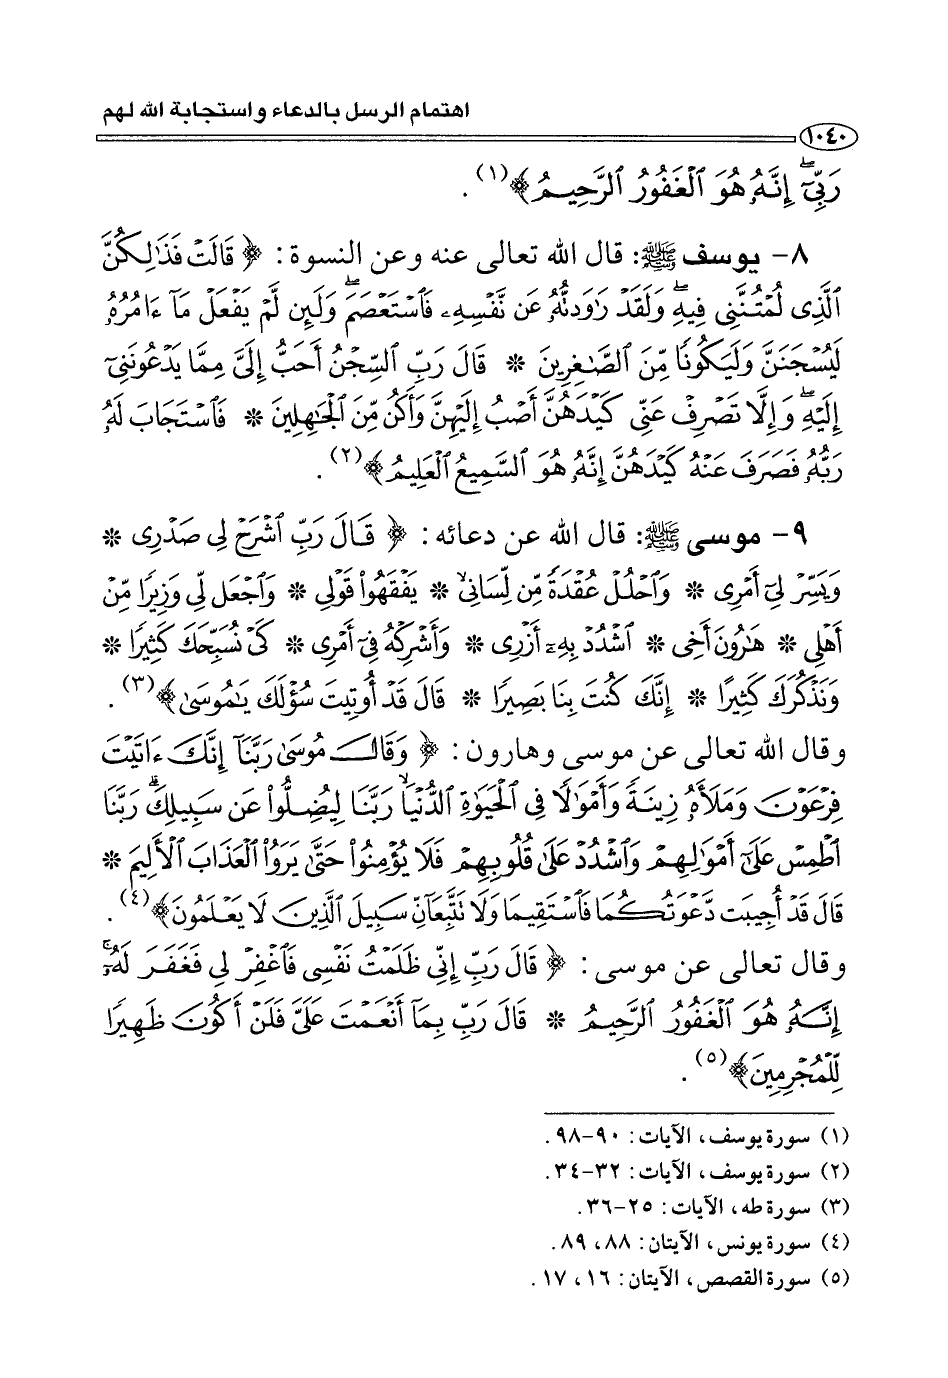 اهتمام الرسل بالدعاء واستجابة الله لهم
١٠٤٠
رَبِّيٓۖ إِنَّهُۥ هُوَ ٱلْغَفُورُ ٱلرَّحِيمُ﴾(١) .
٨- يوسف ﷺ: قال الله تعالى عنه وعن النسوة: ﴿قَالَتْ فَذَٰلِكُنَّ
ٱلَّذِى لُمْتُنَّنِى فِيهِۖ وَلَقَدْ رَٰوَدتُّهُۥ عَن نَّفْسِهِۦ فَٱسْتَعْصَمَۖ وَلَئِن لَّمْ يَفْعَلْ مَآ ءَامُرُهُۥ
لَيُسْجَنَنَّ وَلَيَكُونًا مِّنَ ٱلصَّٰغِرِينَ * قَالَ رَبِّ ٱلسِّجْنُ أَحَبُّ إِلَىَّ مِمَّا يَدْعُونَنِىٓ
إِلَيْهِۖ وَإِلَّا تَصْرِفْ عَنِّى كَيْدَهُنَّ أَصْبُ إِلَيْهِنَّ وَأَكُن مِّنَ ٱلْجَٰهِلِينَ * فَٱسْتَجَابَ لَهُۥ
رَبُّهُۥ فَصَرَفَ عَنْهُ كَيْدَهُنَّ إِنَّهُۥ هُوَ ٱلسَّمِيعُ ٱلْعَلِيمُ﴾(٢) .
٩- موسى ﷺ: قال الله عن دعائه: ﴿قَالَ رَبِّ ٱشْرَحْ لِى صَدْرِى *
وَيَسِّرْ لِىٓ أَمْرِى * وَٱحْلُلْ عُقْدَةً مِّن لِّسَانِىۙ يَفْقَهُوا۟ قَوْلِى * وَٱجْعَل لِّى وَزِيرًا مِّنْ
أَهْلِى * هَٰرُونَ أَخِى * ٱشْدُدْ بِهِۦٓ أَزْرِى * وَأَشْرِكْهُ فِىٓ أَمْرِى * كَىْ نُسَبِّحَكَ كَثِيرًا *
وَنَذْكُرَكَ كَثِيرًا * إِنَّكَ كُنتَ بِنَا بَصِيرًا * قَالَ قَدْ أُوتِيتَ سُؤْلَكَ يَٰمُوسَىٰ﴾(٣) .
وقال الله تعالى عن موسى وهارون: ﴿وَقَالَ مُوسَىٰ رَبَّنَآ إِنَّكَ ءَاتَيْتَ
فِرْعَوْنَ وَمَلَأَهُۥ زِينَةً وَأَمْوَٰلًا فِى ٱلْحَيَوٰةِ ٱلدُّنْيَاۙ رَبَّنَا لِيُضِلُّوا۟ عَن سَبِيلِكَۖ رَبَّنَا
ٱطْمِسْ عَلَىٰٓ أَمْوَٰلِهِمْ وَٱشْدُدْ عَلَىٰ قُلُوبِهِمْ فَلَا يُؤْمِنُوا۟ حَتَّىٰ يَرَوُا۟ ٱلْعَذَابَ ٱلْأَلِيمَ *
قَالَ قَدْ أُجِيبَت دَّعْوَتُكُمَا فَٱسْتَقِيمَا وَلَا تَتَّبِعَآنِّ سَبِيلَ ٱلَّذِينَ لَا يَعْلَمُونَ﴾(٤) .
وقال تعالى عن موسى: ﴿قَالَ رَبِّ إِنِّى ظَلَمْتُ نَفْسِى فَٱغْفِرْ لِى فَغَفَرَ لَهُۥٓۚ
إِنَّهُۥ هُوَ ٱلْغَفُورُ ٱلرَّحِيمُ * قَالَ رَبِّ بِمَآ أَنْعَمْتَ عَلَىَّ فَلَنْ أَكُونَ ظَهِيرًا
لِّلْمُجْرِمِينَ﴾(٥) .
(١) سورة يوسف، الآيات: ٩٠-٩٨.
(٢) سورة يوسف، الآيات: ٣٢-٣٤.
(٣) سورة طه، الآيات: ٢٥-٣٦.
(٤) سورة يونس، الآيتان: ٨٨، ٨٩.
(٥) سورة القصص، الآيتان: ١٦، ١٧.